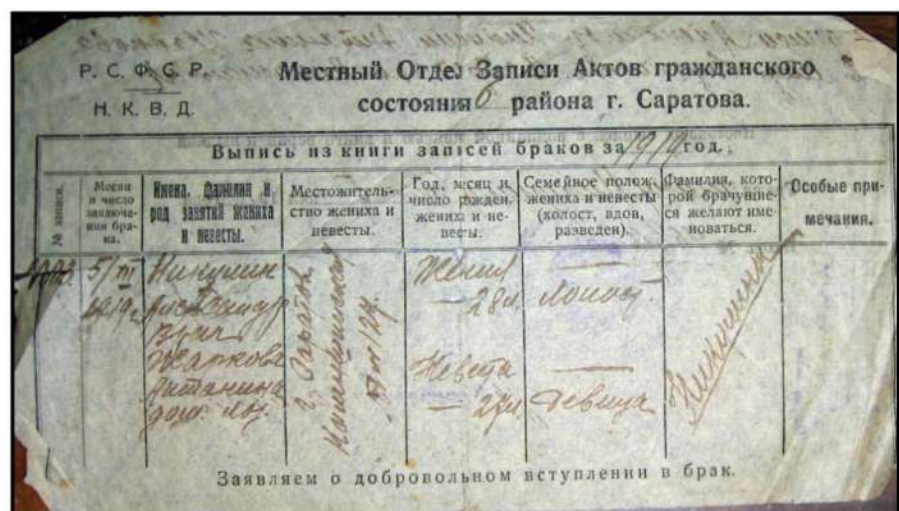 Р. С. Ф. С. Р.
Н. К. В. Д.
Местный Отдел Записи Актов гражданского
состояния 6 района г. Саратова.
Выпись из книги записей браков за 1919 год.
№ записи.
Месяц
и число
заключе-
ния бра-
ка.
Имена, фамилия и
род занятий жениха
и невесты.
Местожитель-
ство жениха и
невесты.
Год, месяц и
число рожден.
жениха и не-
весты.
Семейное полож.
жениха и невесты
(холост, вдов,
разведен).
Фамилия, кото-
рой брачущие-
ся желают име-
новаться.
Особые при-
мечания.
5/III
1919 г.
Никушин
Александр
врач
Жаркова
Антонина
дом.
г. Саратов
Жених
28 л.
холост.
Невеста
девица
Никушины
Заявляем о добровольном вступлении в брак.